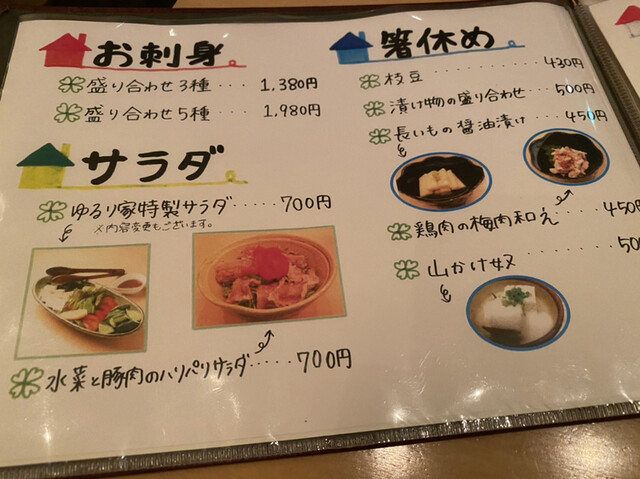 お刺身
盛り合わせ3種・・・1,380円
盛り合わせ5種・・・1,980円
サラダ
ゆるり家特製サラダ・・・・・700円
※内容変更もございます。
水菜と豚肉のハリパリサラダ・・・・・700円
箸休め
枝豆・・・・・・・・・・430円
漬け物の盛り合わせ・・・・500円
長いもの醤油漬け・・・・450円
鶏肉の梅肉和え・・・・450
山かけ奴・・・・・・・・50